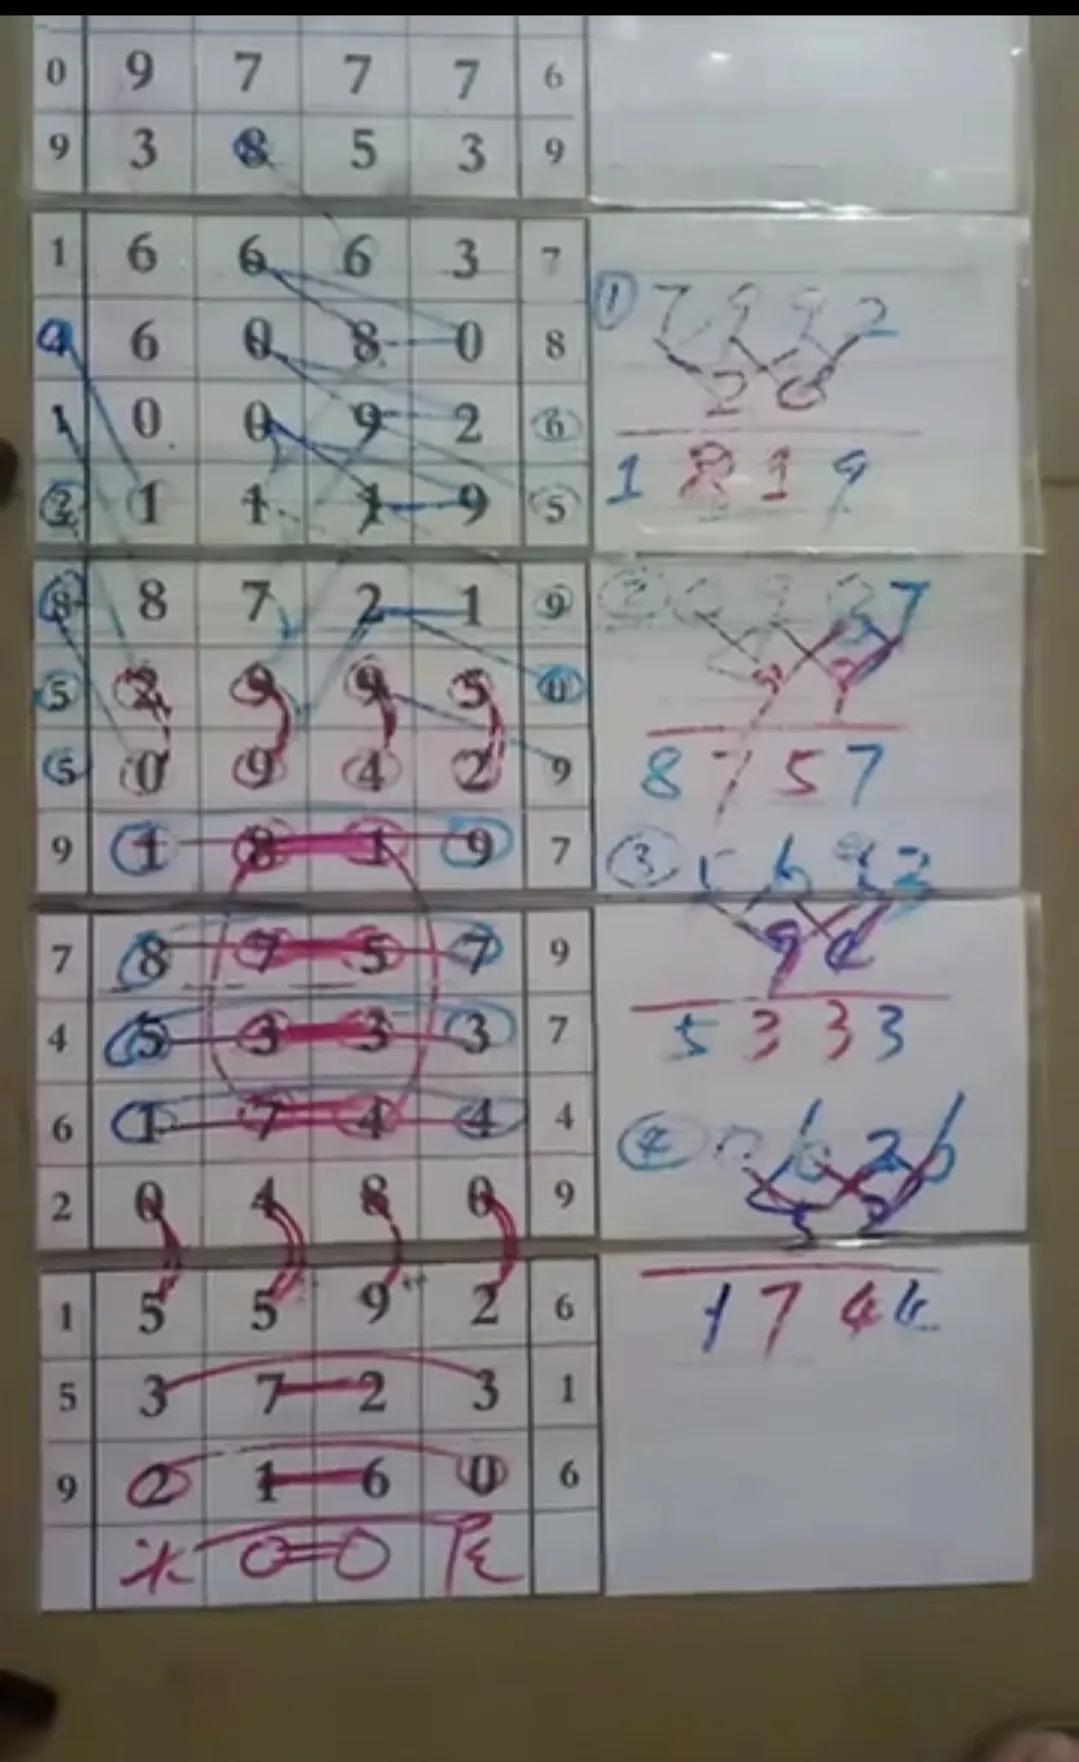 0 9 7 7 7 6
9 3 8 5 3 9
1 6 6 6 3 7
4 6 0 8 0 8
1 0 0 9 2 6
2 1 1 1 9 5
8 8 7 2 1 9
5 2 9 9 5 0
5 0 9 4 2 9
9 1 8 1 9 7
7 8 7 5 7 9
4 5 3 3 3 7
6 1 7 4 4 4
2 0 4 8 0 9
1 5 5 9 2 6
5 3 7 2 3 1
9 2 1 6 0 6
① 7 9 9 2
2 0
1 8 1 9
② 7
8 7 5 7
③
5 3 3 3
④
1 7 4 4